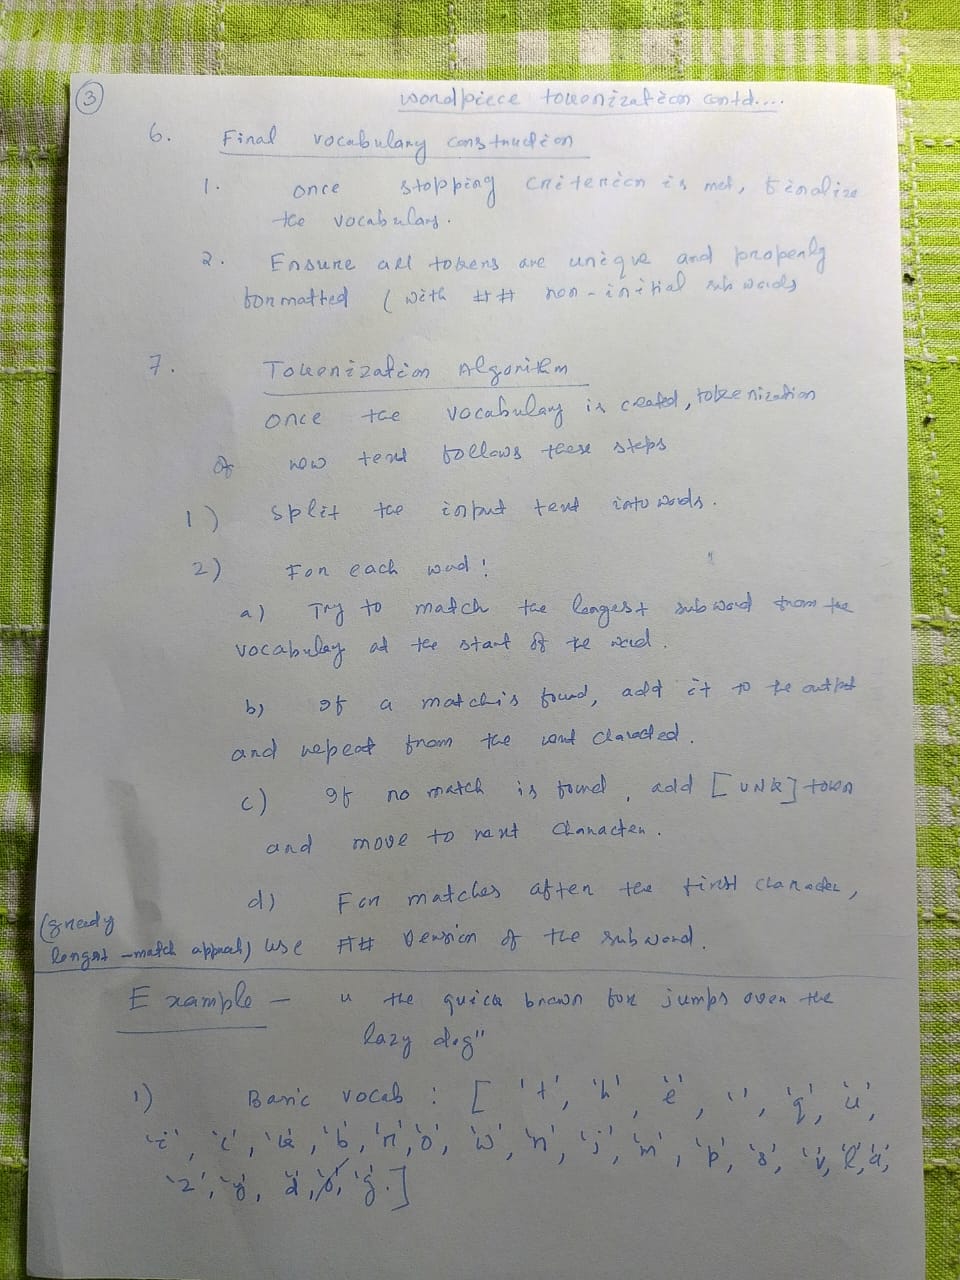 3
Wordpiece tokenization contd....
6. Final vocabulary construction
1. once stopping criterion is met, finalize
the vocabulary.
2. Ensure all tokens are unique and properly
formatted ( with ## non-initial subwords
7. Tokenization Algorithm
once the vocabulary is created, tokenization
of new text follows these steps
1) split the input text into words.
2) For each word:
a) Try to match the longest subword from the
vocabulary at the start of the word.
b) If a match is found, add it to the output
and repeat from the next character.
c) If no match is found, add [UNK] token
and move to next character.
d) For matches after the first character,
(greedy
longest-match approach) use ## version of the subword.
Example - "the quick brown fox jumps over the
lazy dog"
1) Basic vocab : [ 't', 'h', 'e', '', 'q', 'u',
'i', 'c', 'k', 'b', 'r', 'o', 'w', 'n', 'j', 'm', 'p', 's', 'v', 'l', 'a',
'z', 'y', 'd', 'g'.]